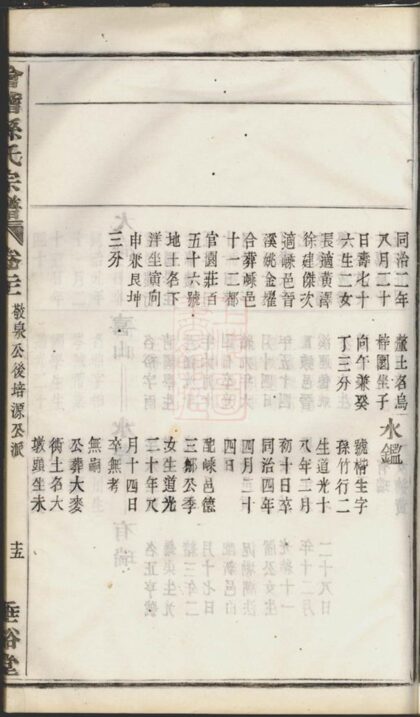 同治二年
八月二十
日壽七十
六生二女
長適黃澤
徐建傑次
適嵊邑晉
溪姚金燿
合葬嵊邑
十一三都
官園莊百
五十六號
地土名下
洋坐寅向
申兼艮坤
三分
董土名烏
梓園坐子
向午兼癸
丁三分
水鑑
號楷生字
孫竹行二
生道光十
八年二月
初十日卒
同治四年
四月二十
四日
配嵊邑德
三鄉公季
女生道光
二十年八
月十四日
卒無考
無嗣
公葬大麥
衕土名大
墩頭坐未
會稽孫氏宗譜
卷三
敬泉公後培源公派
十五
垂裕堂